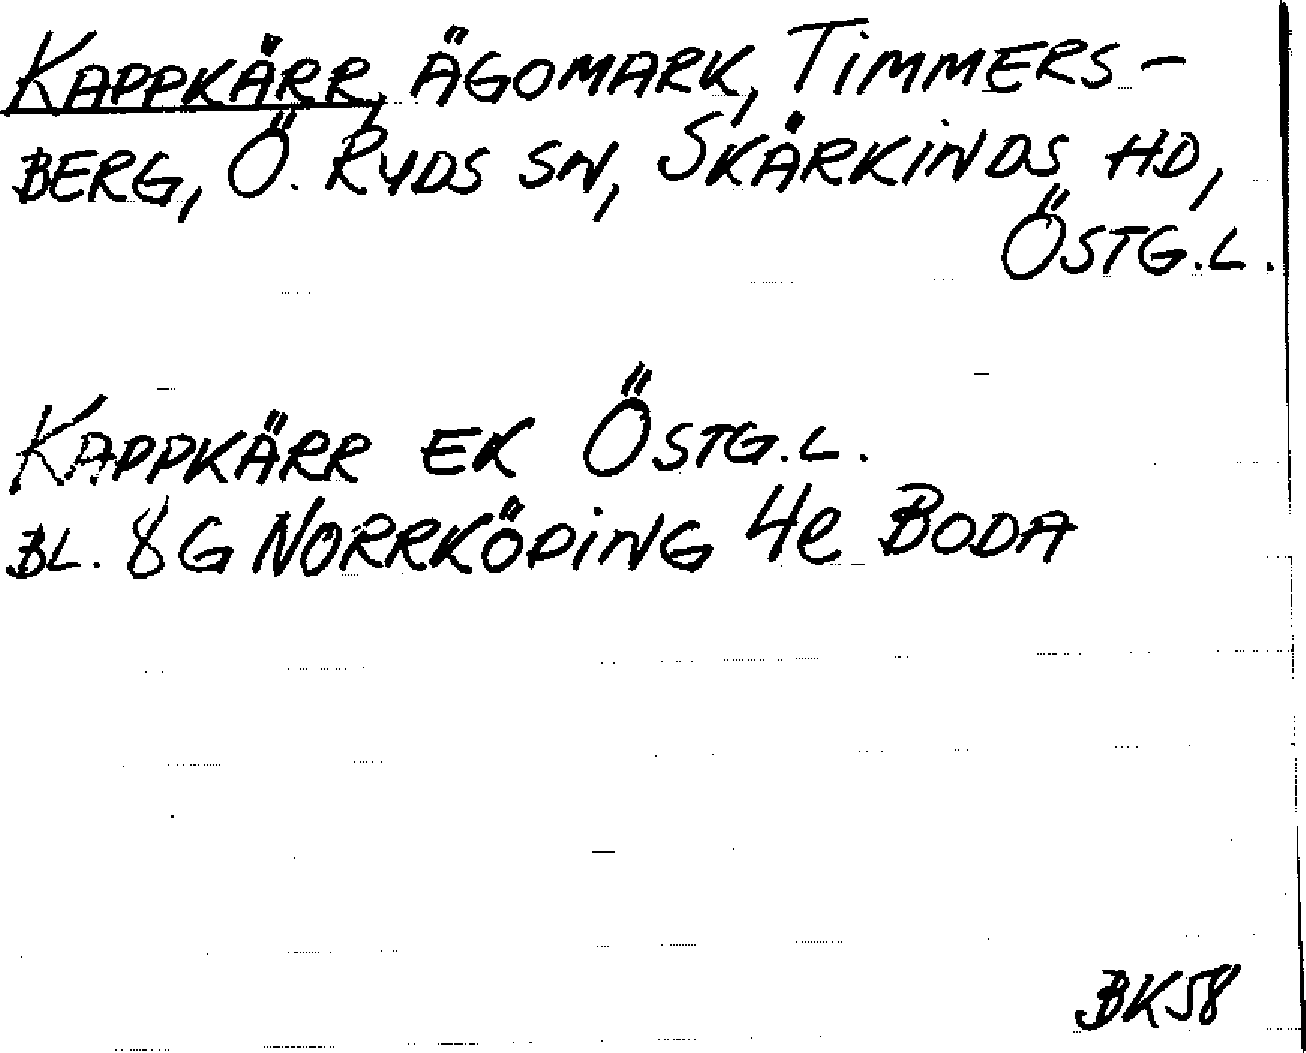 KAPPKÄRR, ÄGOMARK, TIMMERS-
BERG, Ö. RYDS SN, SKÄRKINDS HD,
ÖSTG.L.
KAPPKÄRR EK ÖSTG.L.
BL. 8G NORRKÖPING 4e BODA
BK58